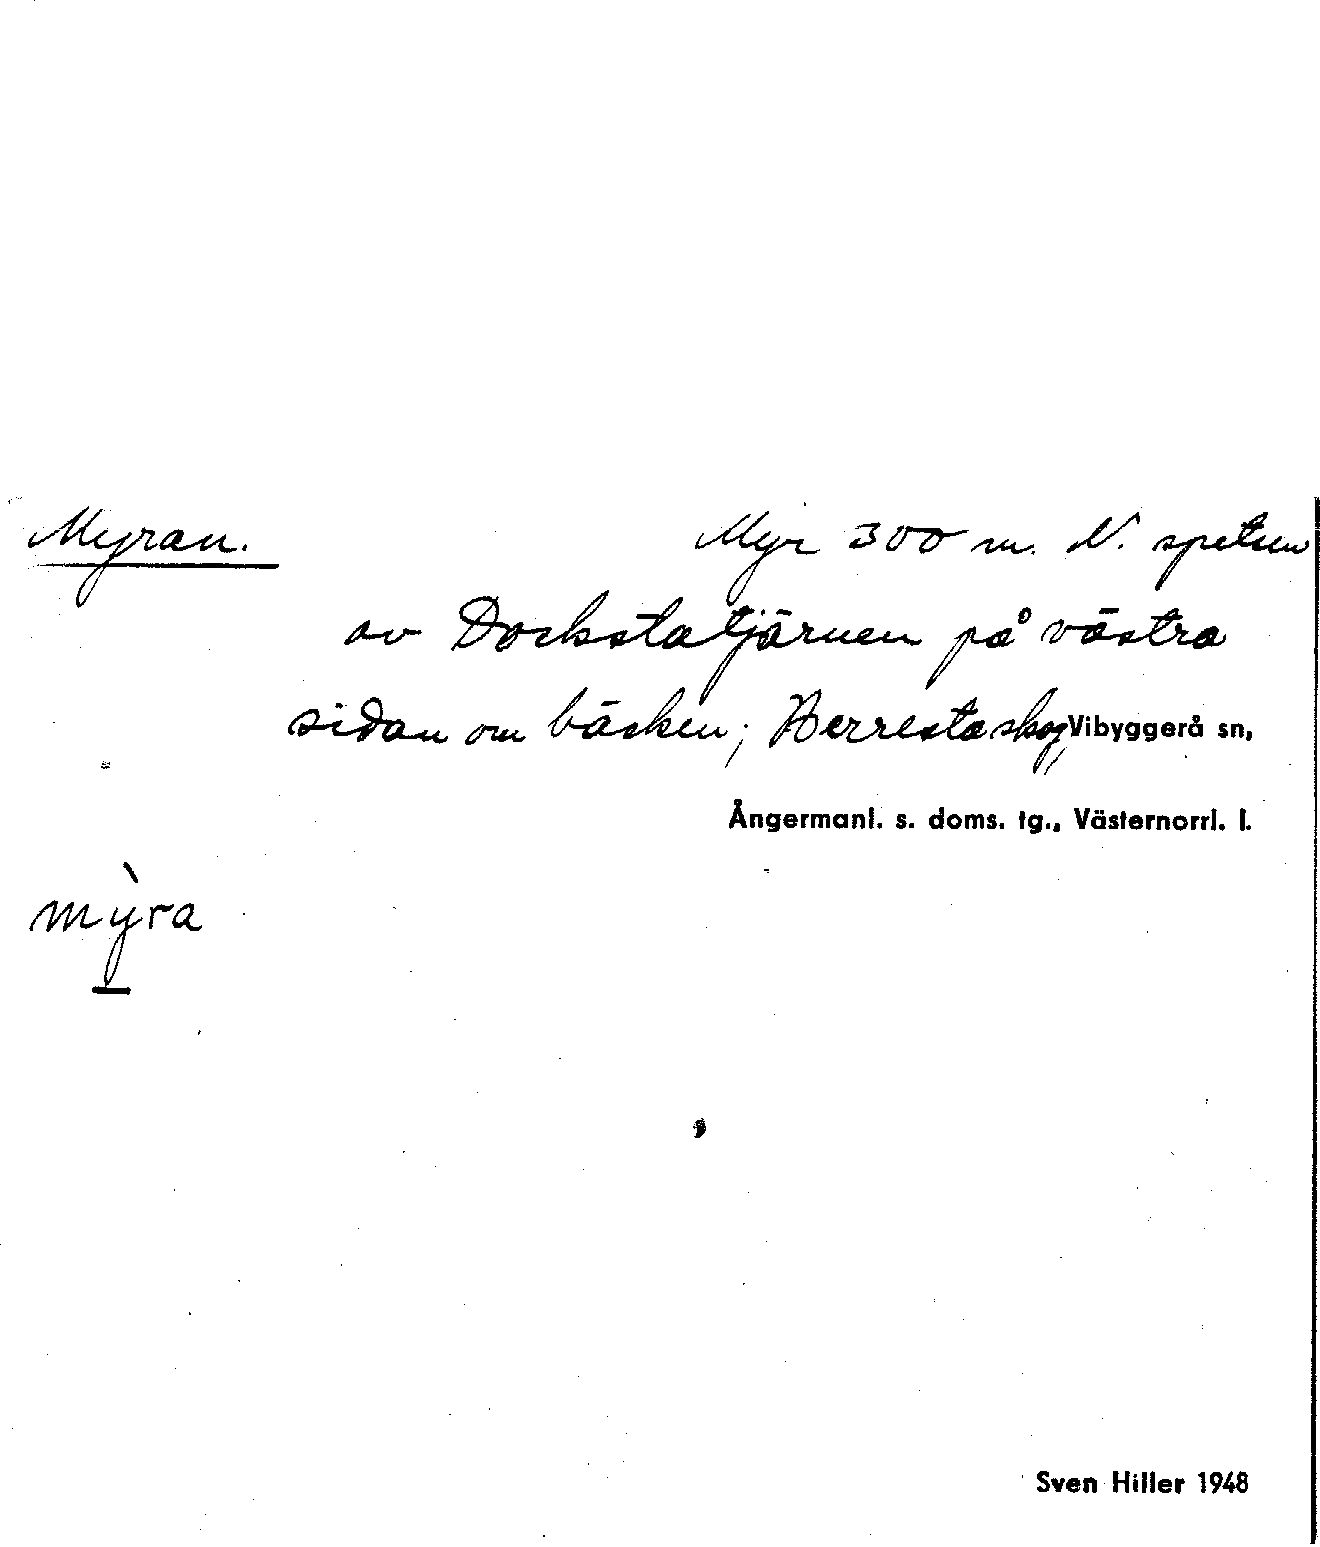 Myran. Myr 300 m. N. spetsen
av Dockstatjärnen på västra
sidan om bäcken; Herrestaskog, Vibyggerå sn,
Ångermanl. s. doms. tg., Västernorrl. l.
mỳra
Sven Hiller 1948